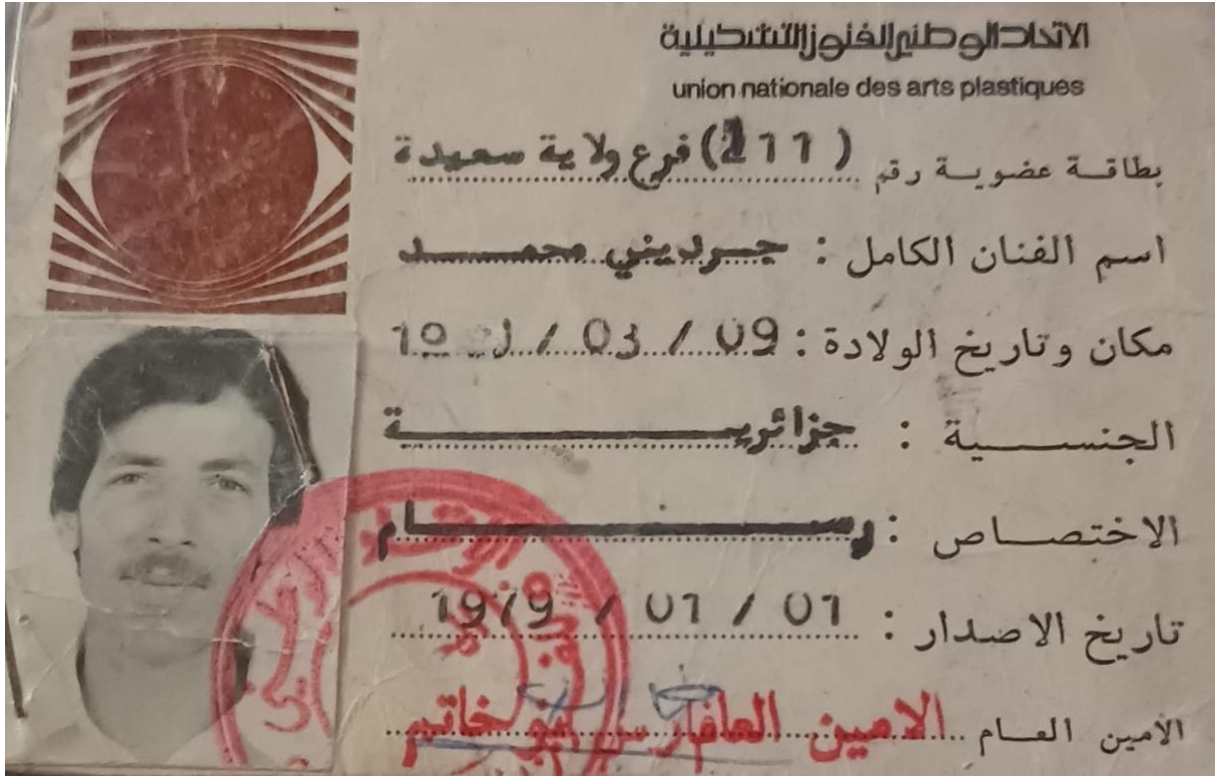 الاتحاد الوطني للفنون التشكيلية
union nationale des arts plastiques
بطاقة عضوية رقم (211) فرع ولاية سعيدة
اسم الفنان الكامل : جرديني محمد
مكان وتاريخ الولادة : 09 / 03 /
الجنسية : جزائرية
الاختصاص : رسام
تاريخ الاصدار : 01 / 01 / 1979
الأمين العام الامين العام فارس بوخاتم